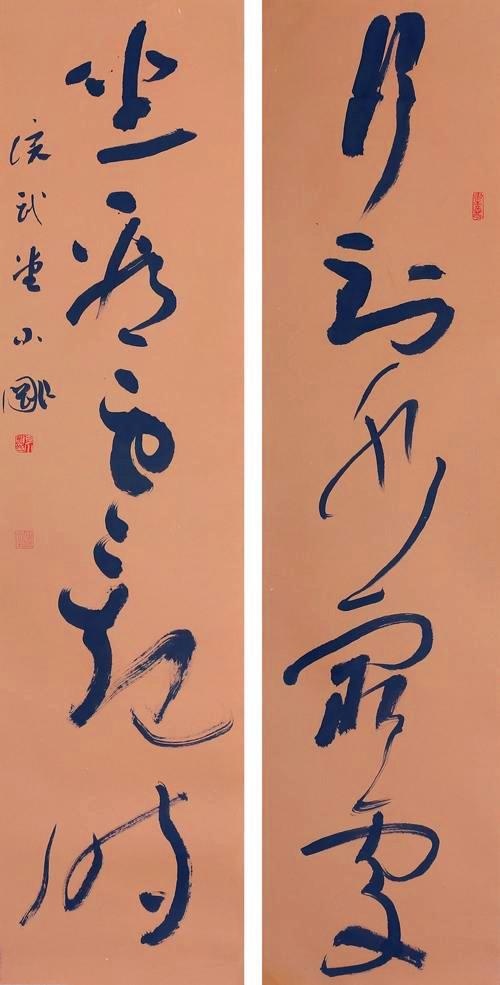 行到水窮處
坐看雲起時
武堂小剛